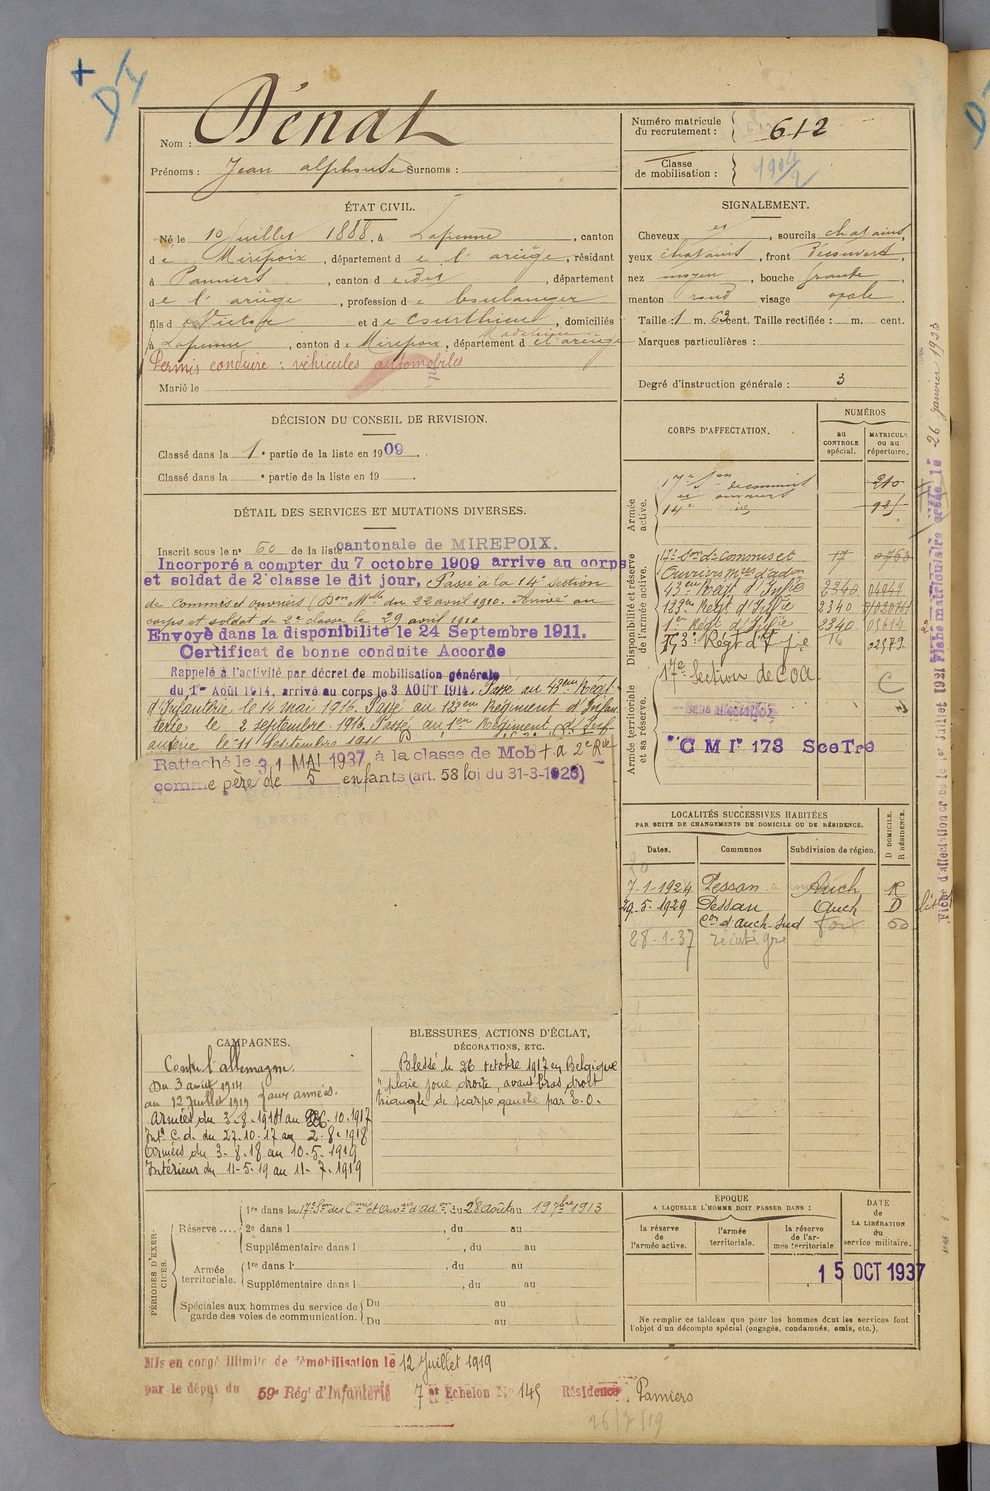 Nom : Dénat
Prénoms : Jean alphonse Surnoms :
Numéro matricule du recrutement : 612
Classe de mobilisation : 1904/2
ÉTAT CIVIL.
Né le 10 Juillet 1888, à Lapenne, canton
de Mirepoix, département de l'ariège, résidant
à Pamiers, canton de dit, département
de l'ariège, profession de boulanger
fils d et de, domiciliés
à Lapenne, canton de Mirepoix, département de l'ariège
Permis conduire : véhicules automobiles
Marié le
SIGNALEMENT.
Cheveux et, sourcils chatains,
yeux chatains, front Découvert,
nez moyen, bouche grande
menton rond visage ovale
Taille 1 m. 62 cent. Taille rectifiée : m. cent.
Marques particulières :
Degré d'instruction générale : 3
DÉCISION DU CONSEIL DE REVISION.
Classé dans la 1e partie de la liste en 1909.
Classé dans la e partie de la liste en 19 .
DÉTAIL DES SERVICES ET MUTATIONS DIVERSES.
Inscrit sous le n° 60 de la liste cantonale de MIREPOIX.
Incorporé a compter du 7 octobre 1909 arrive au corps
et soldat de 2e classe le dit jour, Passé à la 14e Section
de Commis et ouvriers (Don Mlle du 22 avril 1910. Arrivé au
corps et soldat de 2e classe le 29 avril 1910
Envoyé dans la disponibilité le 24 Septembre 1911.
Certificat de bonne conduite Accordé
Rappelé à l'activité par décret de mobilisation générale
du 1er Août 1914, arrivé au corps le 3 AOUT 1914. Passé au 43eme Régt
d'Infanterie le 14 mai 1916. Passé au 123eme Régiment d'Infan
terie le 2 septembre 1916. Passé au 1er Régiment d'Inf
anterie le 11 Septembre 1916
Rattaché le 31 MAI 1937 à la classe de Mob + a 2e Rve
comme père de 5 enfants (art. 58 loi du 31-3-1928)
CORPS D'AFFECTATION.
NUMÉROS
au CONTROLE spécial.
MATRICULE ou au répertoire.
Armée active.
17e Son de commis 210
et ouvriers
14e id 925
Disponibilité et réserve de l'armée active.
17e Son de Commis et 17 0760
Ouvriers Mres d'adon
43eme Regt d'Infie 2340 04044
123eme Regt d'Infie 2340
1er Régt d'Infie 2340 05614
Armée territoriale et sa réserve.
17e Section de COA C
Sans affectation
"C M Ire 173 SceTre
LOCALITÉS SUCCESSIVES HABITÉES
PAR SUITE DE CHANGEMENTS DE DOMICILE OU DE RÉSIDENCE.
Dates. Communes Subdivision de région. D DOMICILE. R RÉSIDENCE.
7-1-1924 Pessan Auch R
29.5-1929 Pessan Auch D
Con d'Auch-Sud Foix
28-1-37
Fiche d'affectation créée le 1er Juillet 1921 Fiche matriculaire créée le 26 janvier 1933
CAMPAGNES.
Contre l'allemagne.
Du 3 août 1914
au 12 Juillet 1919 } aux armées.
Armées du 3-8-1914 au 26-10-1917
Intr C.d. du 27-10-17 au 2-8-1918
Armées du 3-8-18 au 10-5-1919
Intérieur du 11-5-19 au 11-7-1919
BLESSURES, ACTIONS D'ÉCLAT,
DÉCORATIONS, ETC.
Blessé le 26 octobre 1917 en Belgique
"plaie joue droite, avant bras droit
triangle de scarpa gauche par E.O.
PÉRIODES D'EXERCICES.
Réserve....
1re dans la 17e Son des Cmis et Ouvers d'Adon, du 28 août au 19 7bre 1913
2e dans l , du au
Supplémentaire dans l , du au
Armée territoriale.
1re dans l' , du au
Supplémentaire dans l , du au
Spéciales aux hommes du service de garde des voies de communication.
Du au
Du au
EPOQUE
A LAQUELLE L'HOMME DOIT PASSER DANS :
la réserve de l'armée active.
l'armée territoriale.
la réserve de l'armée territoriale
DATE de LA LIBÉRATION du service militaire.
15 OCT 1937
Ne remplir ce tableau que pour les hommes dont les services font
l'objet d'un décompte spécial (engagés, condamnés, omis, etc.).
Mis en congé illimité de démobilisation le 12 Juillet 1919
par le dépôt du 59e Régt d'Infanterie 7e Echelon No 145 Résidence Pamiers
26/7/19